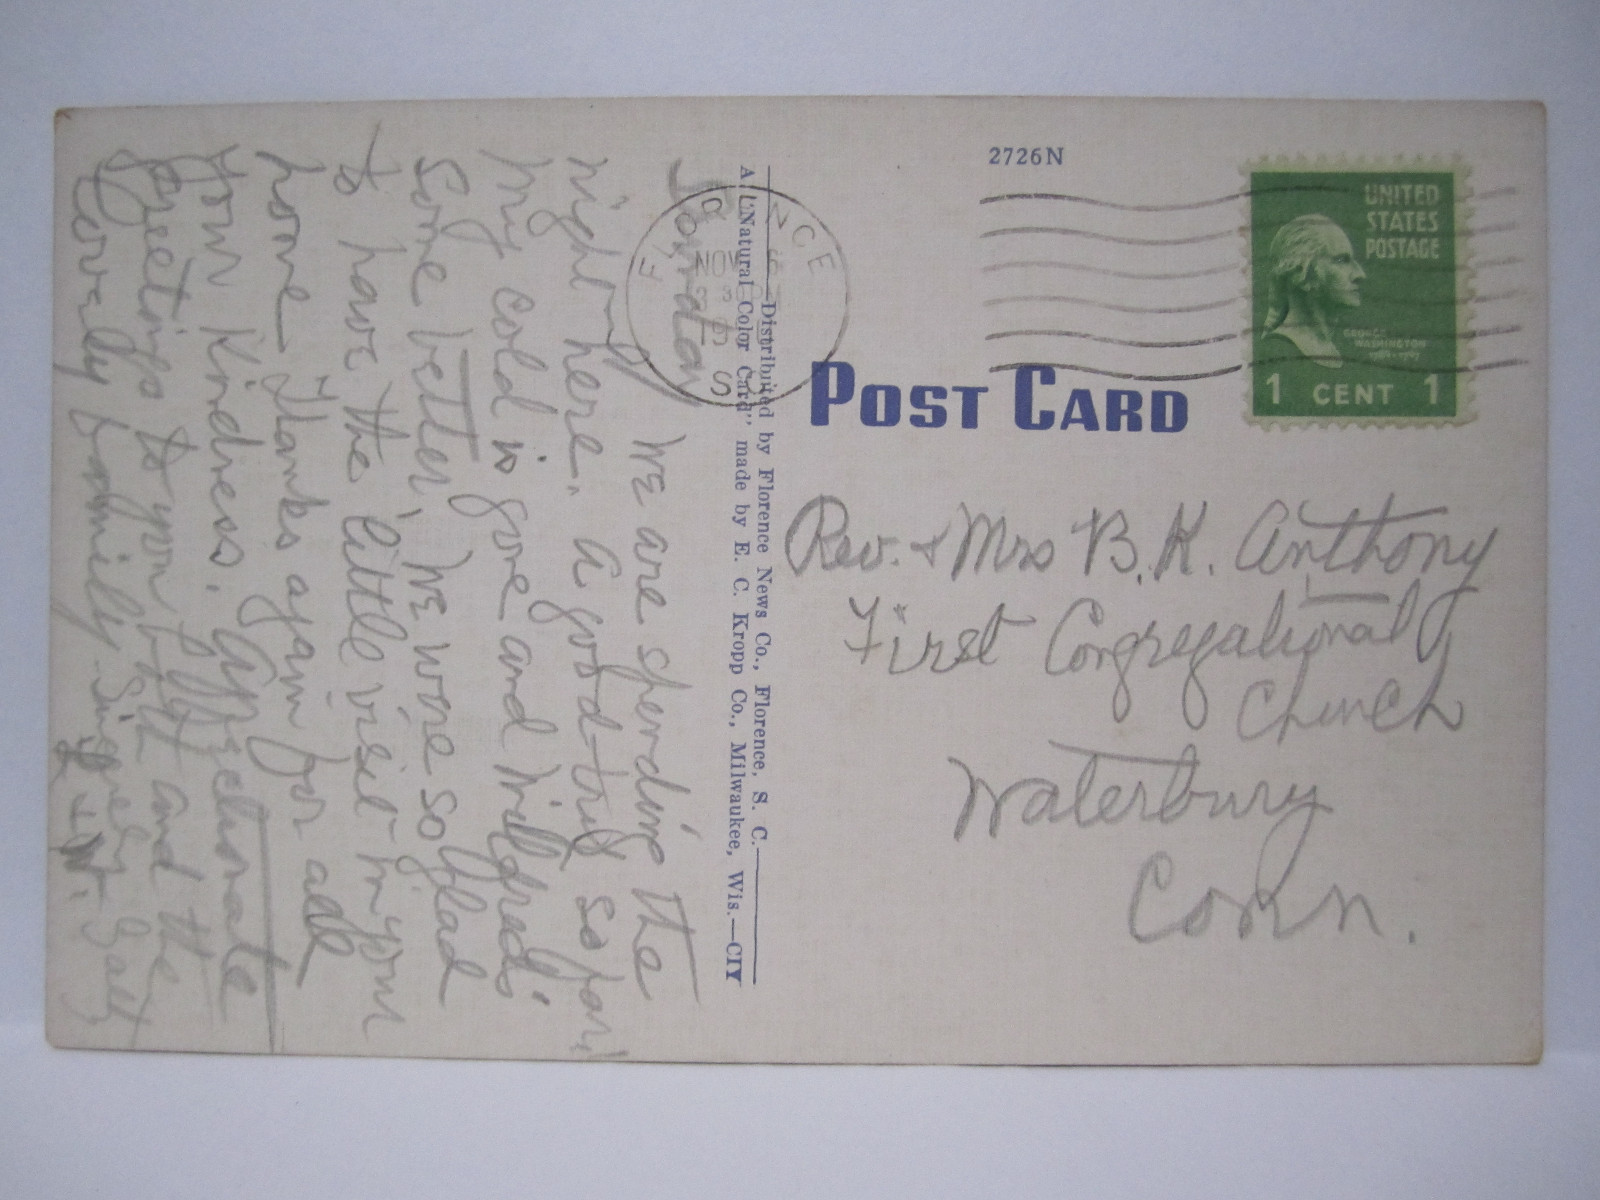 2726N
UNITED
STATES
POSTAGE
GEORGE
WASHINGTON
1 CENT 1
POST CARD
NOV
S
Distributed by Florence News Co., Florence, S. C.
A "Natural Color Card" made by E. C. Kropp Co., Milwaukee, Wis.—CIY
Rev. + Mrs B. K. Anthony
First Congregational
Church
Waterbury
Conn.
Sunday
We are spending the
night here. A good trip so far!
My cold is gone and Mildred's
some better. We were so glad
to have the little visit in your
home Thanks again for all
your kindness. Appreciate
Greetings to you both and the
lovely family. Sincerely